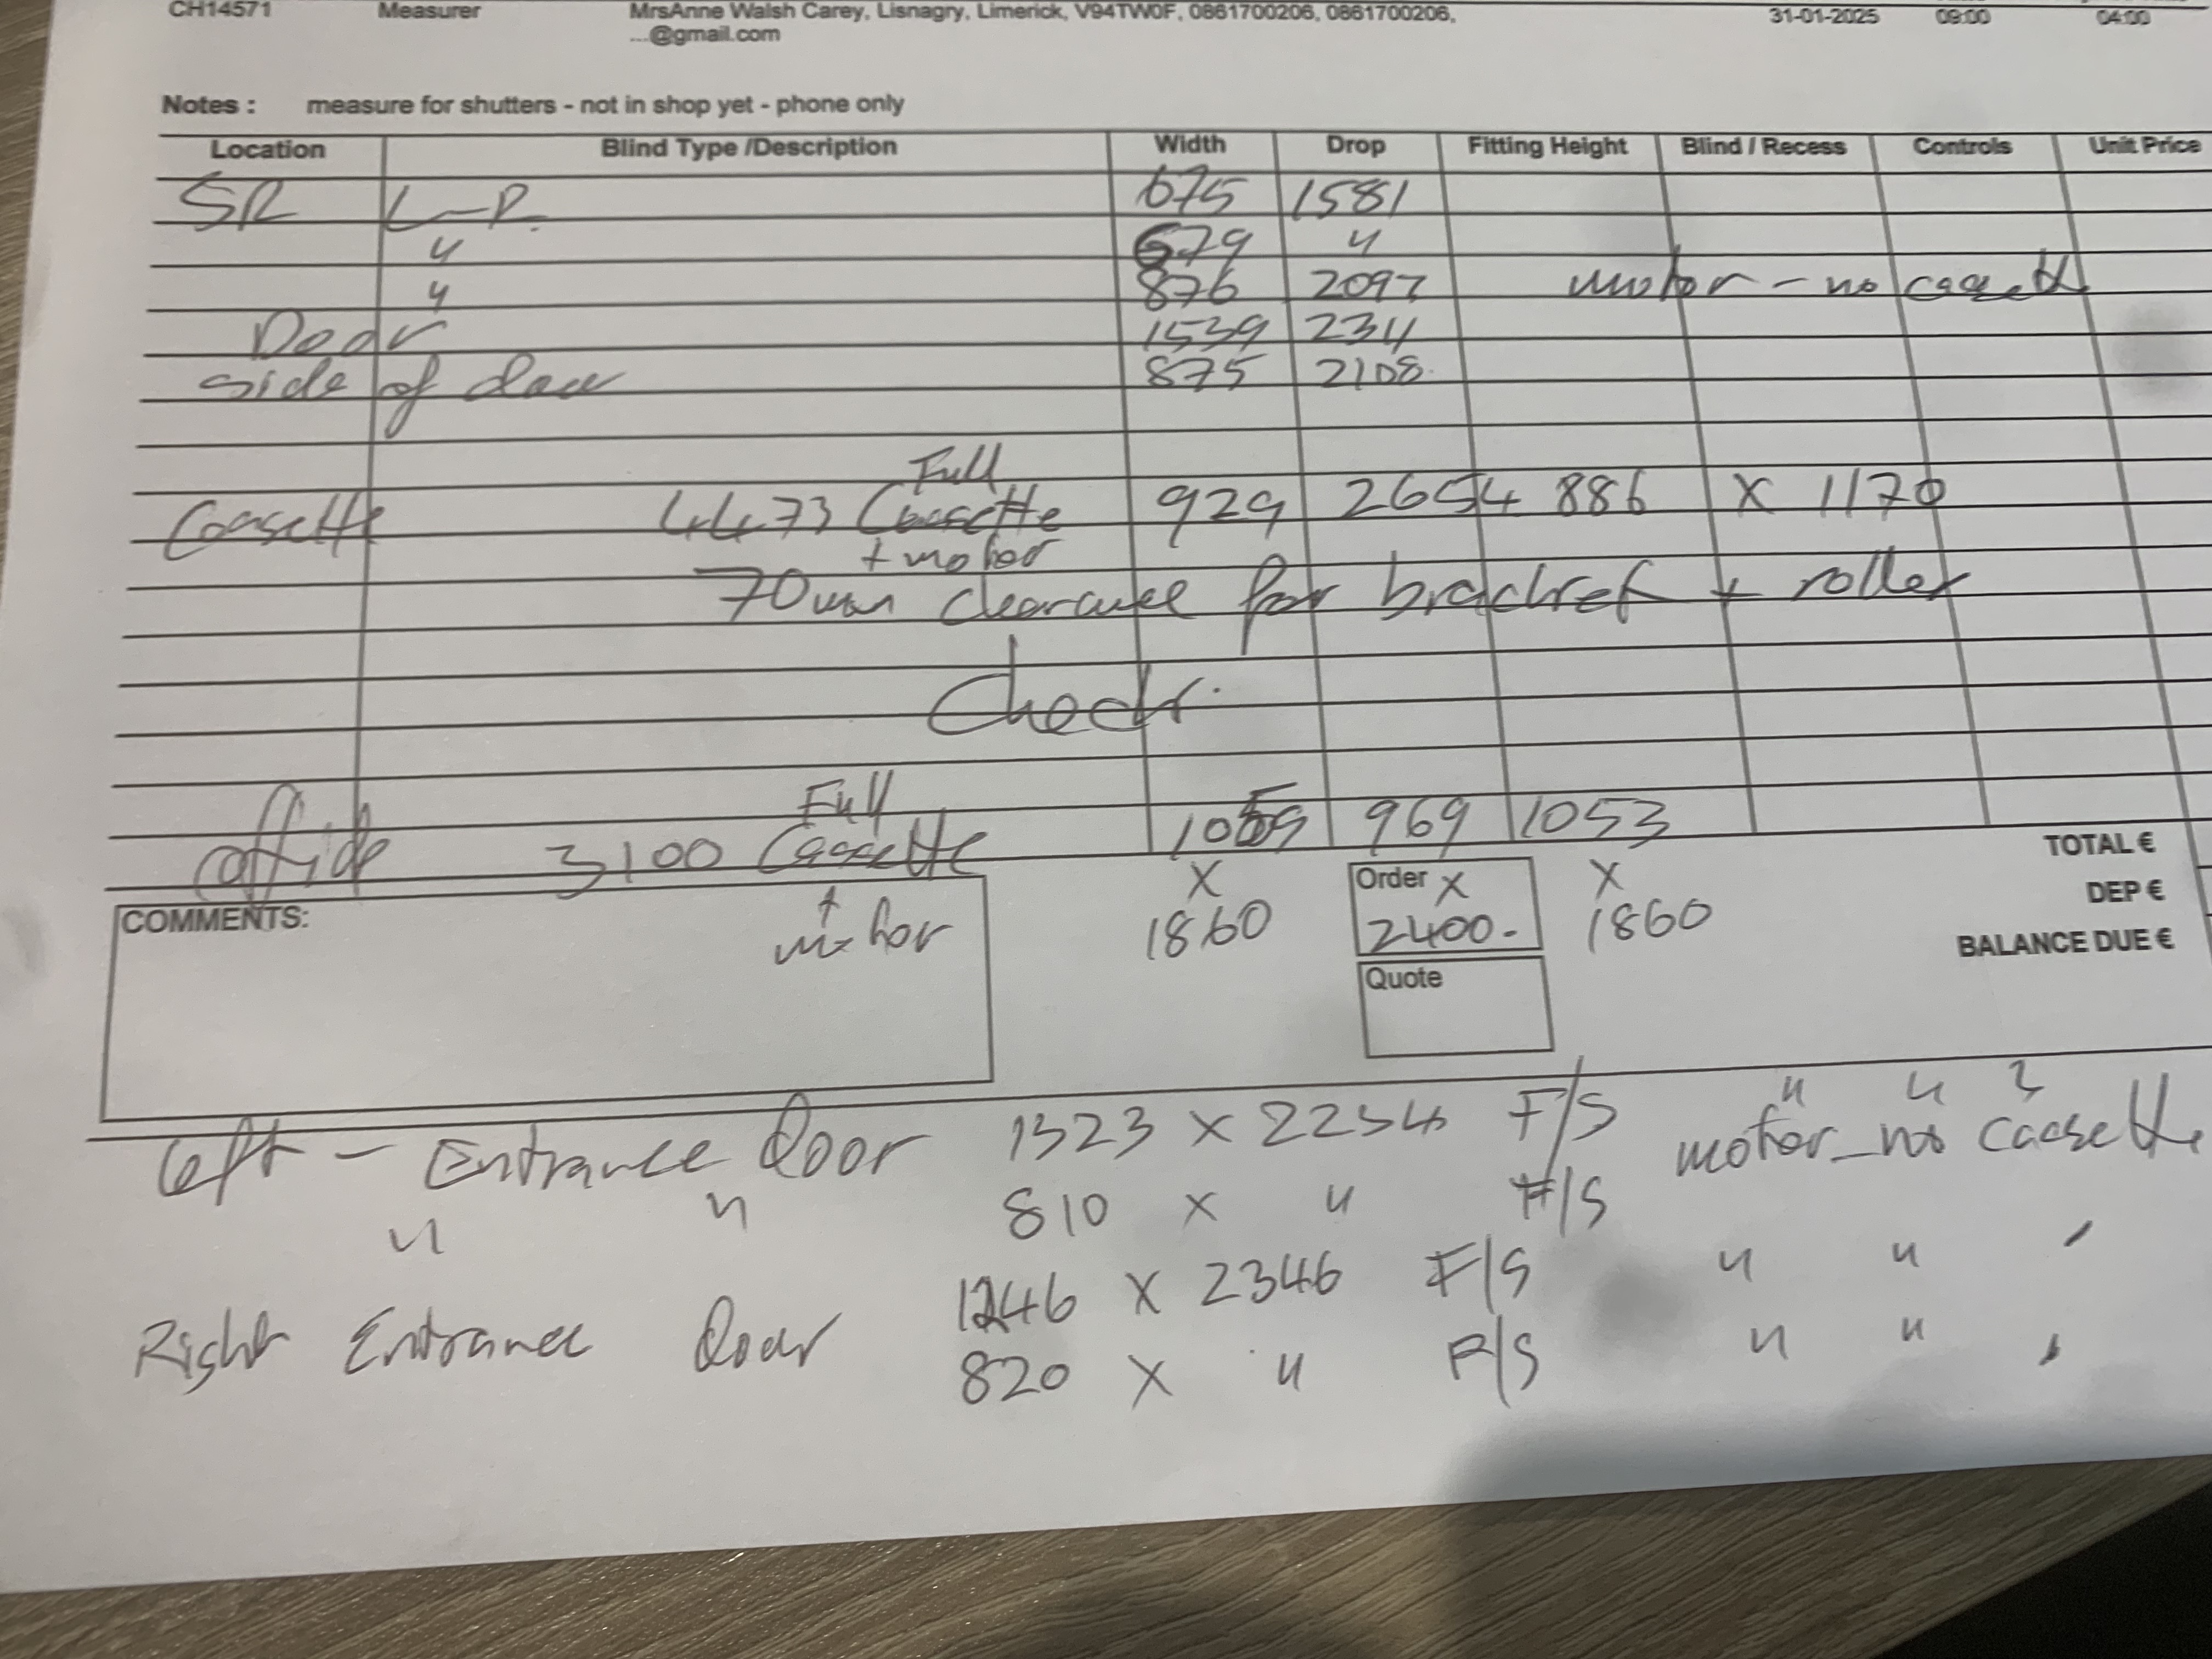 CH14571 Measurer MrsAnne Walsh Carey, Lisnagry, Limerick, V94TW0F, 0861700206, 0861700206, 31-01-2025 09:00 04:00
...@gmail.com
Notes : measure for shutters - not in shop yet - phone only
Location Blind Type /Description Width Drop Fitting Height Blind / Recess Controls Unit Price
SR L-R. 675 1581
〃 679 〃
〃 876 2097 motor - no cassette
Door 1539 2311
side of door 875 2108.
Full
Cassette 4473 Cassette 929 2654 886 X 1170
+ motor
70mm clearance for bracket + roller
Check.
Full
office 3100 Cassette 1059 969 1053
+ motor X Order X X
1860 2400. 1860
Quote
COMMENTS:
TOTAL €
DEP €
BALANCE DUE €
〃 〃 〃
left - Entrance Door 1323 x 2254 F/S motor - no cassette
〃 〃 810 x 〃 F/S
1246 x 2346 F/S 〃 〃 〃
Right Entrance Door 820 x 〃 F/S 〃 〃 〃